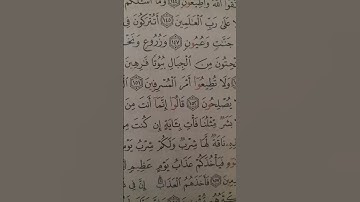 تَّقُوا۟ ٱللَّهَ وَأَطِيعُونِ وَمَآ أَسْـَٔلُكُمْ
عَلَىٰ رَبِّ ٱلْعَٰلَمِينَ ١٤٥ أَتُتْرَكُونَ فِى
جَنَّٰتٍ وَعُيُونٍ ١٤٧ وَزُرُوعٍ وَنَخْ
حِتُونَ مِنَ ٱلْجِبَالِ بُيُوتًا فَٰرِهِينَ
وَلَا تُطِيعُوٓا۟ أَمْرَ ٱلْمُسْرِفِينَ ١٥١
يُصْلِحُونَ ١٥٢ قَالُوٓا۟ إِنَّمَآ أَنتَ مِنَ
بَشَرٌ مِّثْلُنَا فَأْتِ بِـَٔايَةٍ إِن كُنتَ مِنَ
ذِهِۦ نَاقَةٌ لَّهَا شِرْبٌ وَلَكُمْ شِرْبُ يَوْمٍ
فَيَأْخُذَكُمْ عَذَابُ يَوْمٍ عَظِيمٍ
مِينَ فَأَخَذَهُمُ ٱلْعَذَابُ إِنَّ فِى